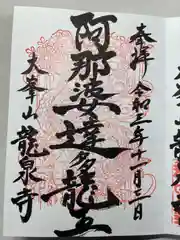 奉拝 令和三年十一月二日
阿那婆達多龍王
大峯山 龍泉寺